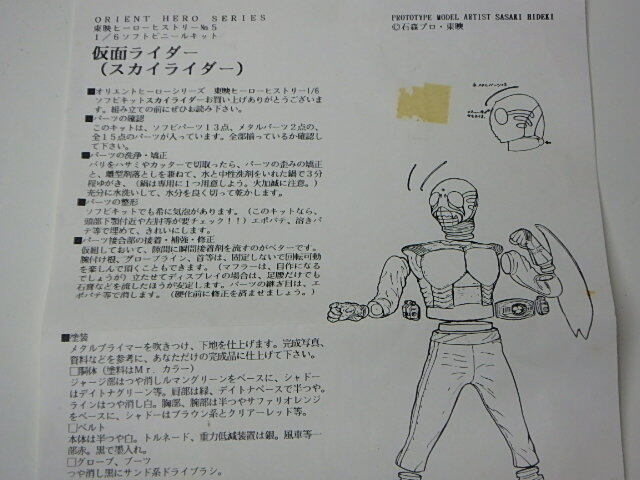 ORIENT HERO SERIES
東映ヒーローヒストリー№5
1/6ソフトビニールキット
仮面ライダー
(スカイライダー)
PROTOTYPE MODEL ARTIST SASAKI HIDEKI
©石森プロ・東映
■オリエントヒーローシリーズ 東映ヒーローヒストリー1/6
ソフビキットスカイライダーお買い上げありがとうございま
す。組み立ての前にぜひお読み下さい。
■パーツの確認
このキットは、ソフビパーツ13点、メタルパーツ2点の、
全15点のパーツが入っています。全部揃っているか確認し
て下さい。
■パーツの洗浄・矯正
バリをハサミやカッターで切取ったら、パーツの歪みの矯正
と、離型剤落としを兼ねて、水と中性洗剤をいれた鍋で3分
程ゆがき、(鍋は専用に1つ用意しよう。火加減に注意。)
充分に水洗いして、水分を良く切って乾かします。
■パーツの整形
ソフビキットでも希に気泡があります。(このキットなら、
頭部下顎付近や左肘等が要チェック!!)エポパテ、溶きパ
テ等で埋めて、きれいにします。
■パーツ接合部の接着・補強・修正
仮組しておいて、隙間に瞬間接着剤を流すのがベターです。
腕付け根、グローブライン、首等は、固定しないで回転可動
を楽しんで頂くこともできます。(マフラーは、自作になる
でしょうか)立たせてディスプレイの場合は、足腰だけでも
石膏などを流したほうが安定します。パーツの継ぎ目は、エ
ポパテ等で消します。(硬化前に修正を済ませましょう。)
■塗装
メタルプライマーを吹きつけ、下地を仕上げます。完成写真、
資料などを参考に、あなただけの完成品に仕上げて下さい。
□胴体(塗料はMr.カラー)
ジャージ部はつや消しルマングリーンをベースに、シャドー
はデイトナグリーン等。肩部は緑、デイトナベースで半つや。
ラインはつや消し白。胸部、腕部は半つやサファリオレンジ
をベースに、シャドーはブラウン系とクリアーレッド等。
□ベルト
本体は半つや白。トルネード、重力低減装置は銀。風車等一
部赤。黒で墨入れ。
□グローブ、ブーツ
つや消し黒にサンド系ドライブラシ。